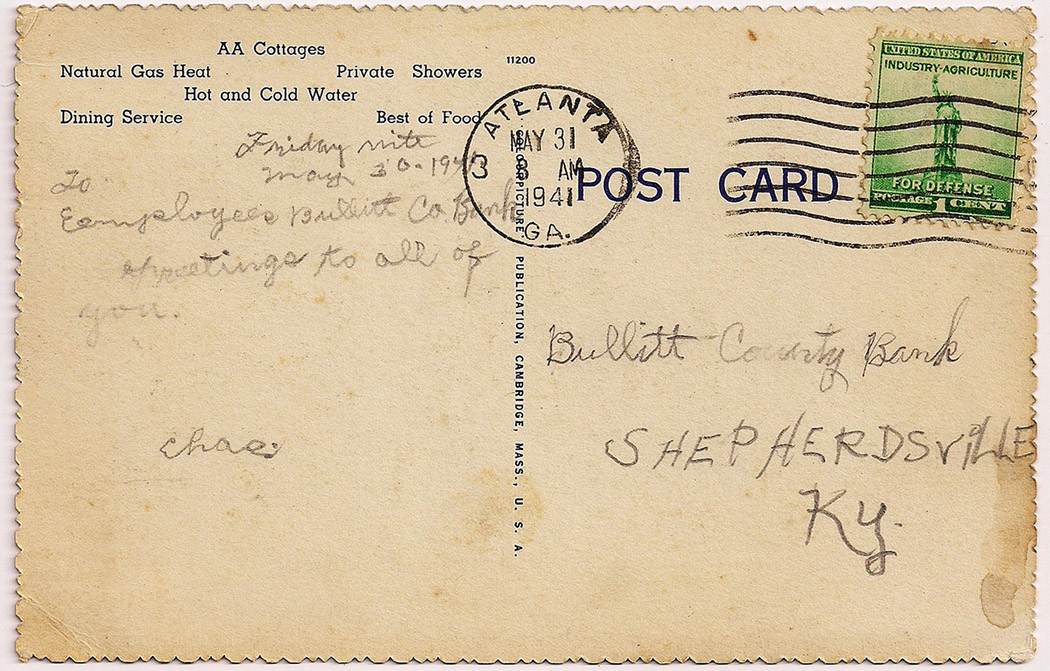 AA Cottages
Natural Gas Heat Private Showers
Hot and Cold Water
Dining Service Best of Food
11200
Friday nite
May 30-1941
To
Eemployees Bullitt Co. Bank
Greetings to all of
you.
Chas
ATLANTA
MAY 31
3 8 AM
1941
GA.
COLORPICTURE PUBLICATION, CAMBRIDGE, MASS., U. S. A.
POST CARD
UNITED STATES OF AMERICA
INDUSTRY·AGRICULTURE
FOR DEFENSE
POSTAGE 1 CENT
Bullitt County Bank
SHEPHERDSVILLE
Ky.